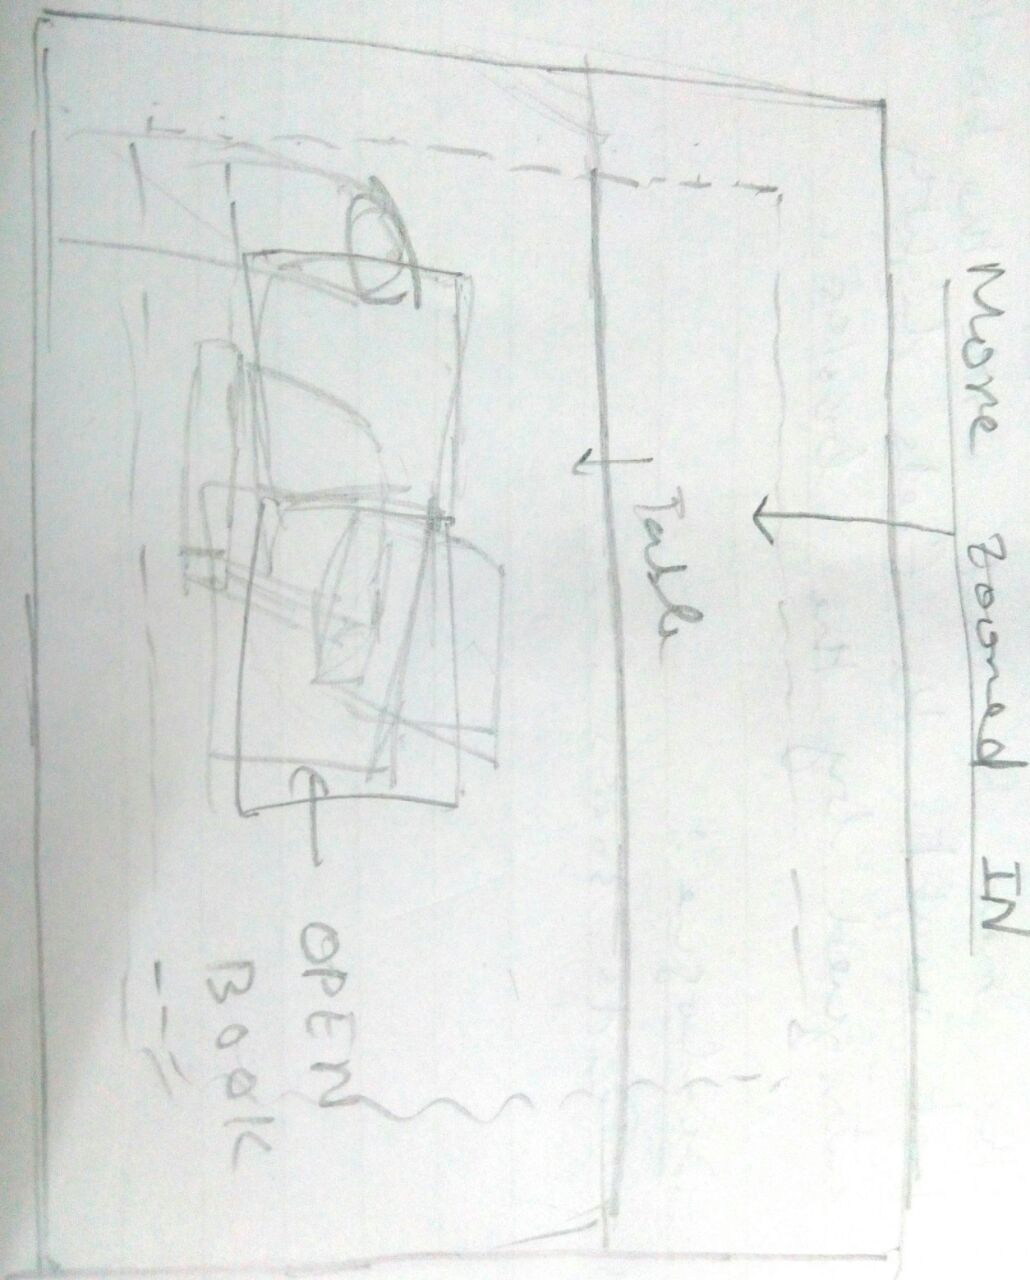 More zoomed IN
Table
OPEN
BOOK